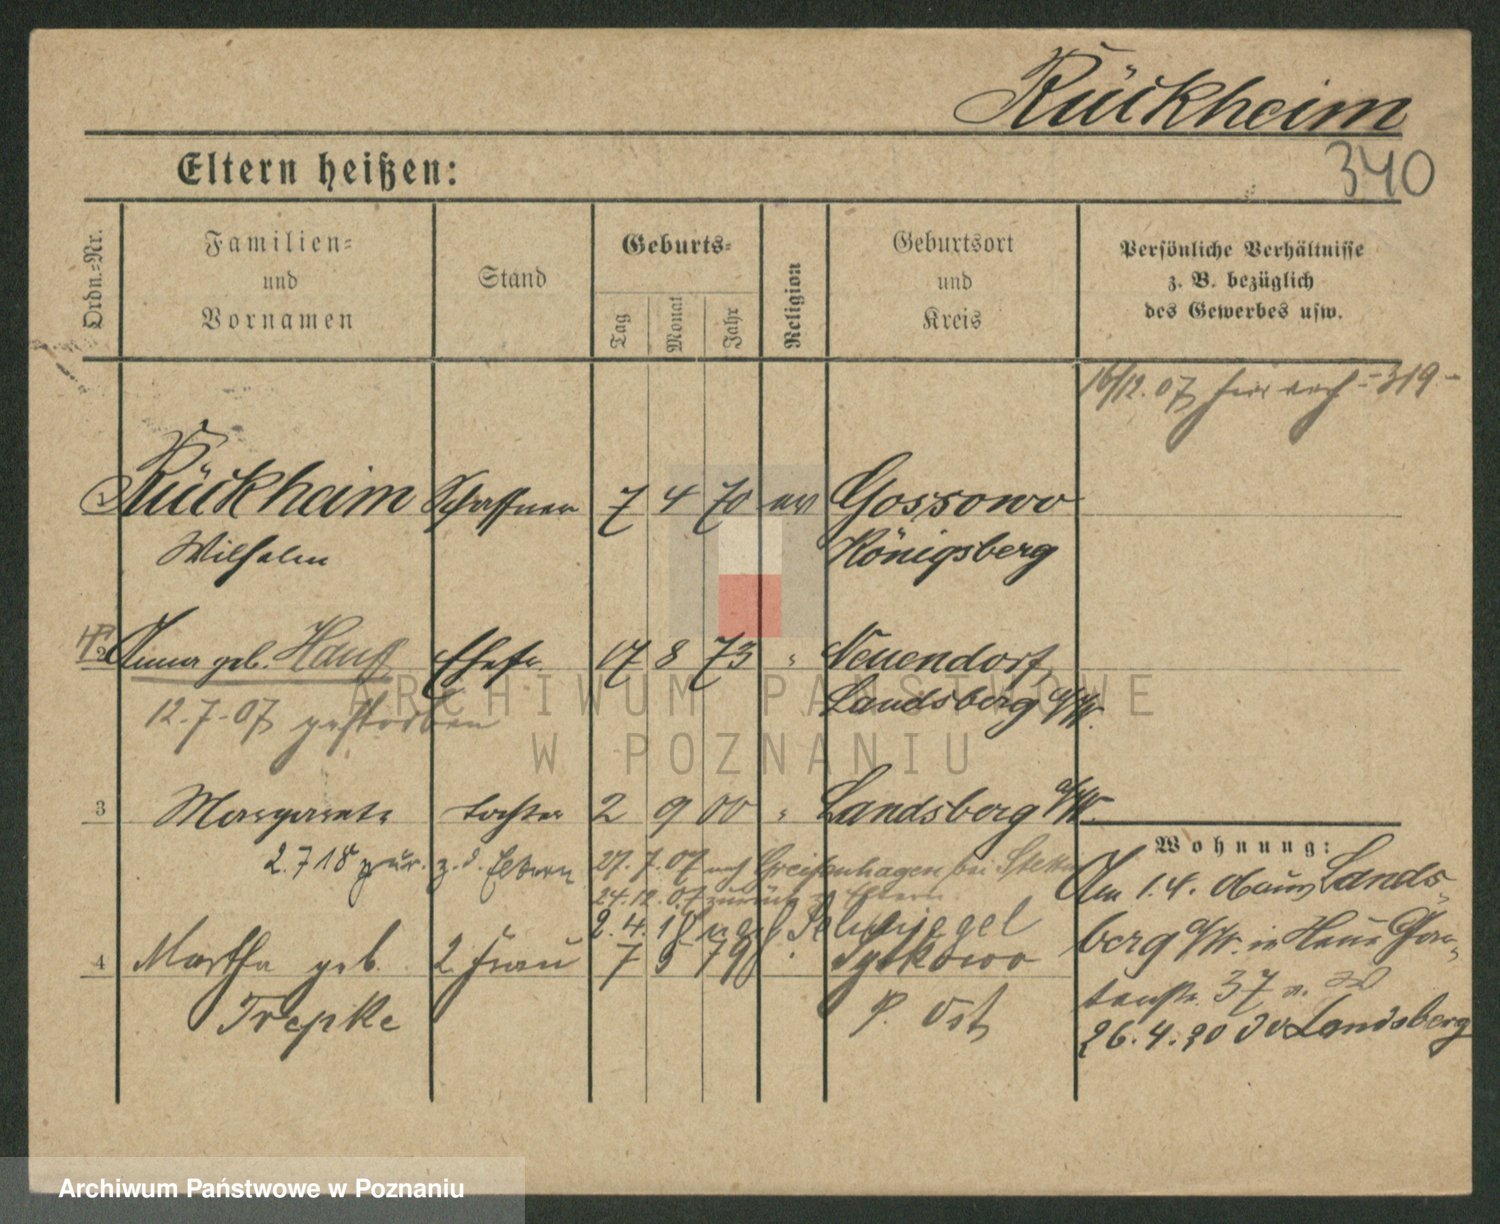 Rückheim
340
Eltern heißen:
Ordn.-Nr.
Familien-
und
Vornamen
Stand
Geburts-
Tag
Monat
Jahr
Religion
Geburtsort
und
Kreis
Persönliche Verhältnisse
z. B. bezüglich
des Gewerbes usw.
16/12.07 319
1 Rückheim Schaffner 7 4 70 ev Gossowo
Wilhelm Königsberg
2 Anna geb. Ehefr. 17 8 73 " Neuendorf,
Landsberg a/W.
12.7.07 gestorben
3 Margarete Tochter 2 9 00 " Landsberg a/W.
2.7.18 zur. z. d. Eltern 27.7.07 nach Greifenhagen bei
24.12.07 zurück z. Eltern
2.4.18 nach Schwiegel
4 Martha geb. 2 Frau 7 5 79 "
Trepke P. Ost
Wohnung:
Am 1.4. Lands-
berg a/W. in Gar-
tenstr. 37
26.4.20 Landsberg
ARCHIWUM PAŃSTWOWE
W POZNANIU
Archiwum Państwowe w Poznaniu